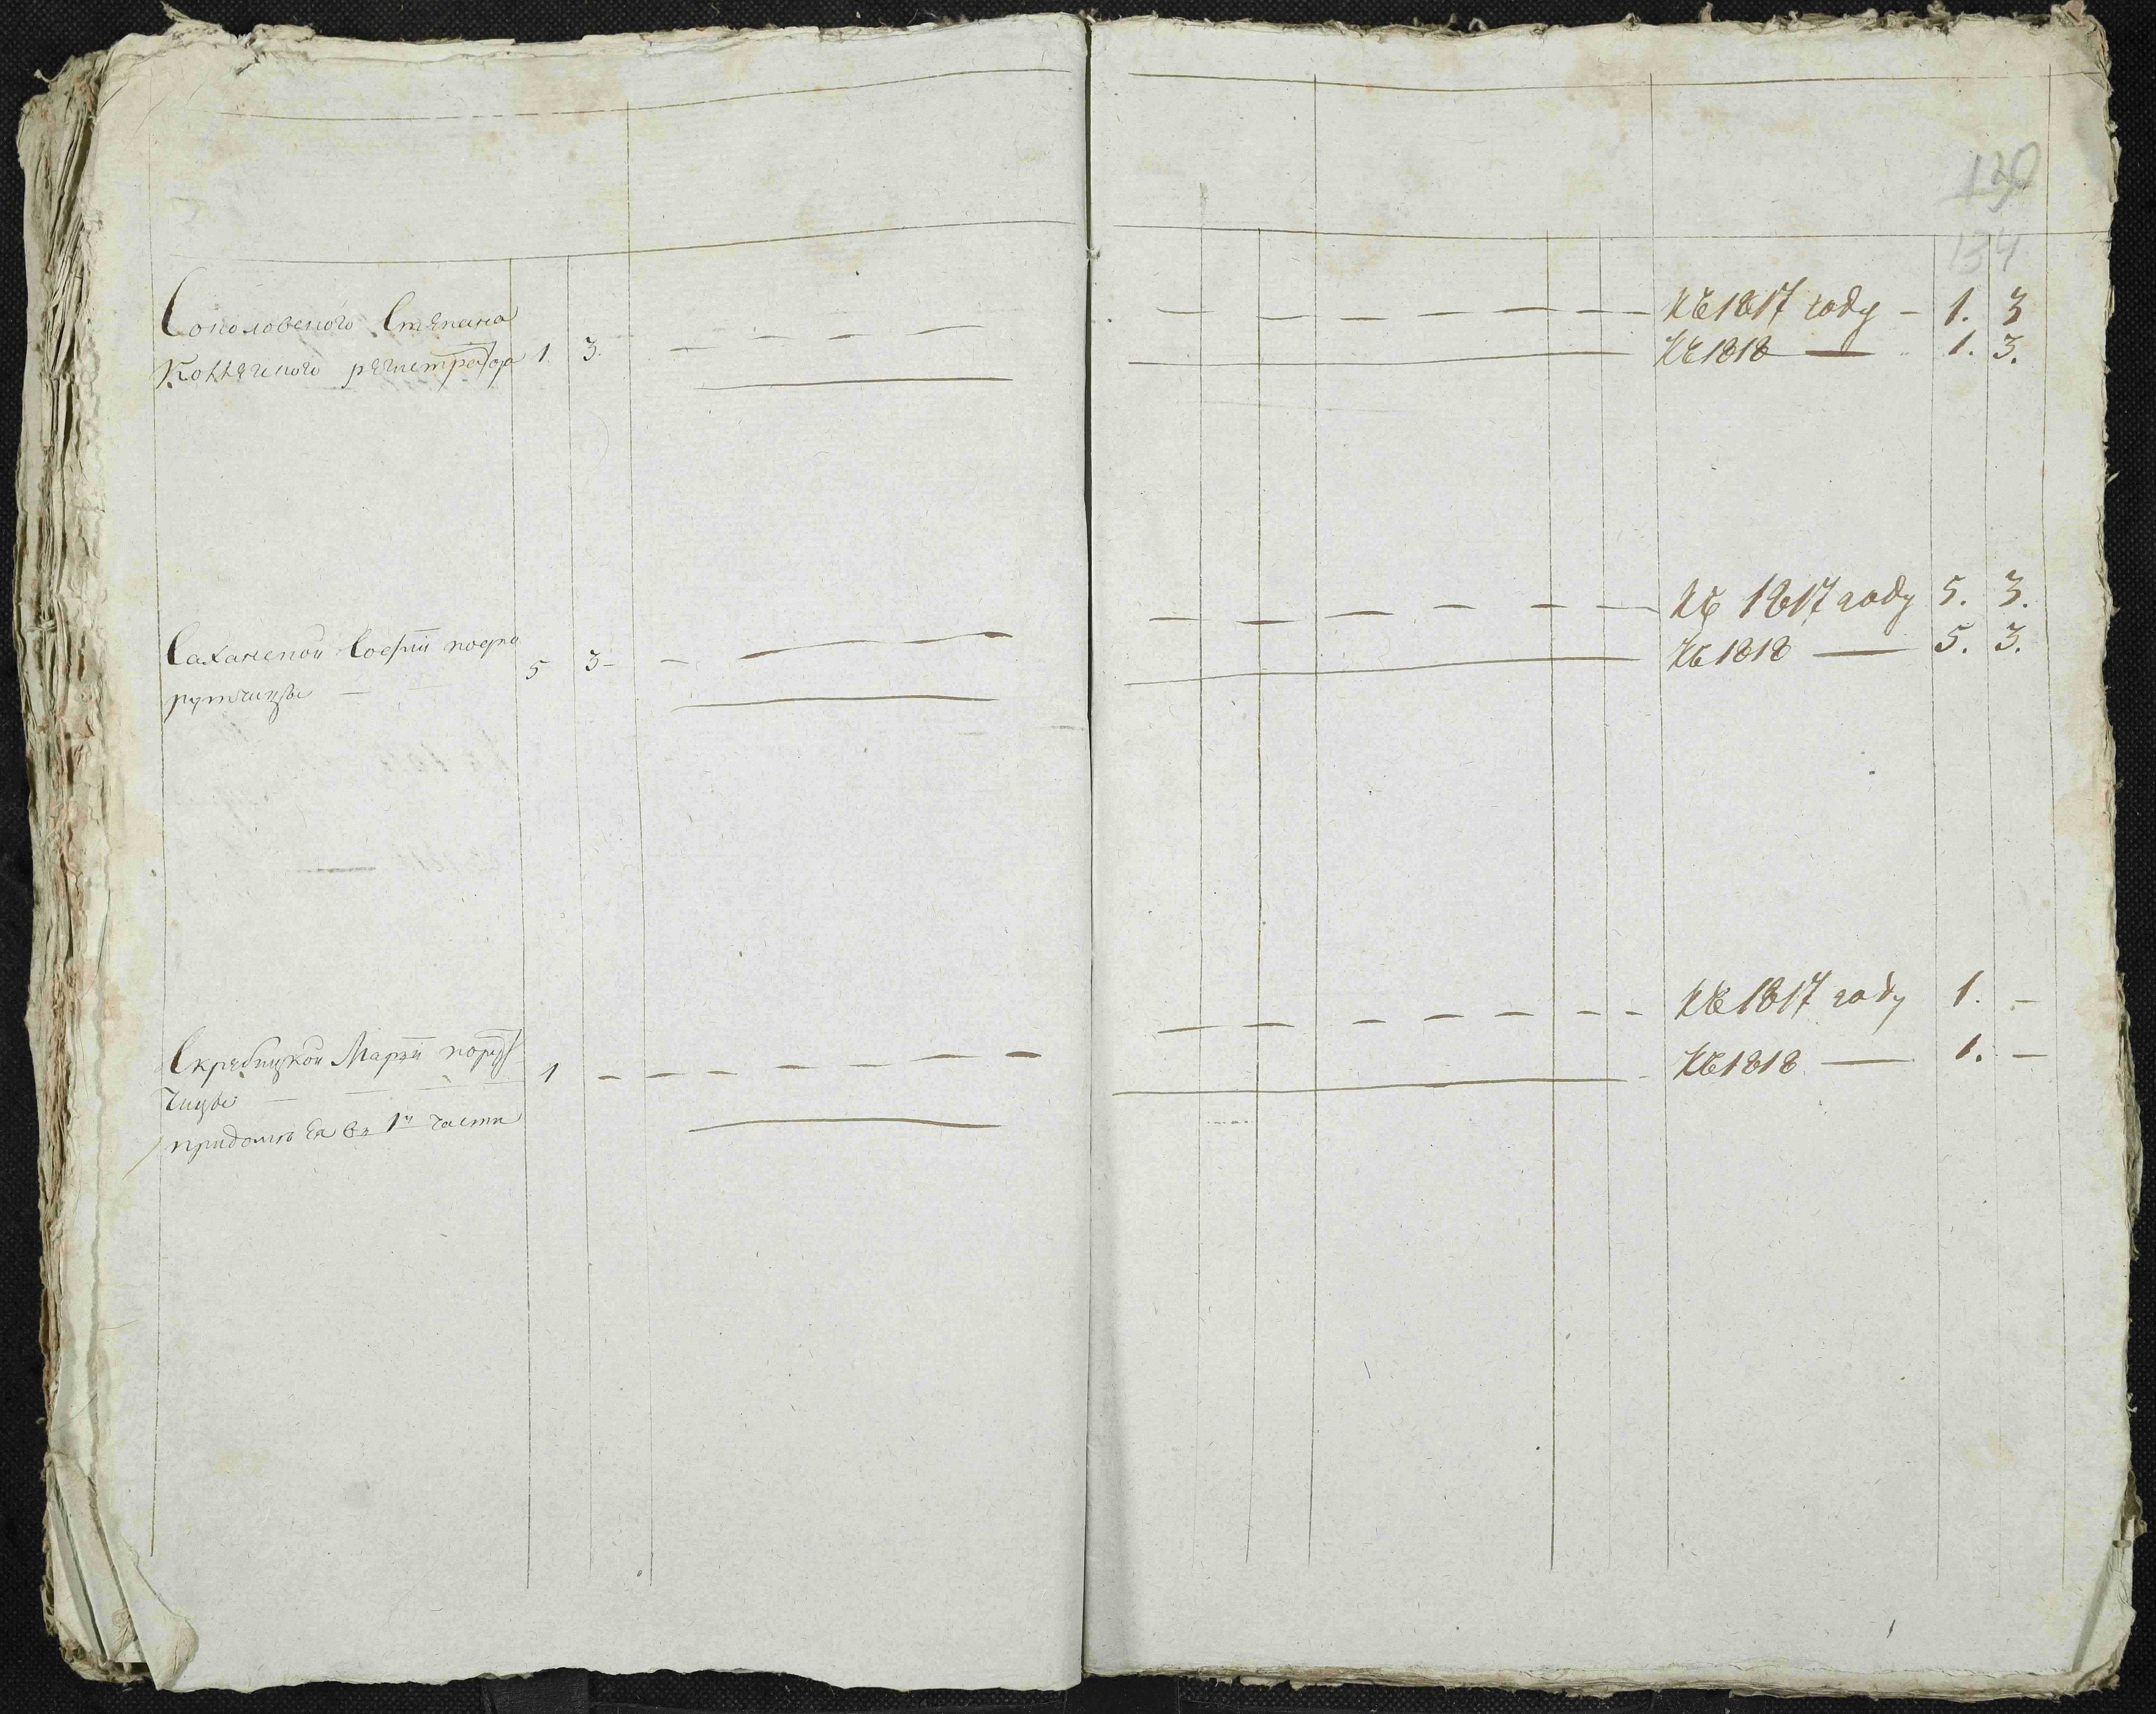 130
134
Соколовского Степана
Коллежского регистратора 1. 3.
Къ 1817 году – 1. 3
Къ 1818 — 1. 3.
Сахацкой Софіи
ручицы — 5 3 –
Къ 1817 году 5. 3.
Къ 1818 — 5. 3.
Скребицкой Маріи пору
чицы 1
при домѣ Ея въ 1й части
Къ 1817 году 1. –
Къ 1818 — 1. –